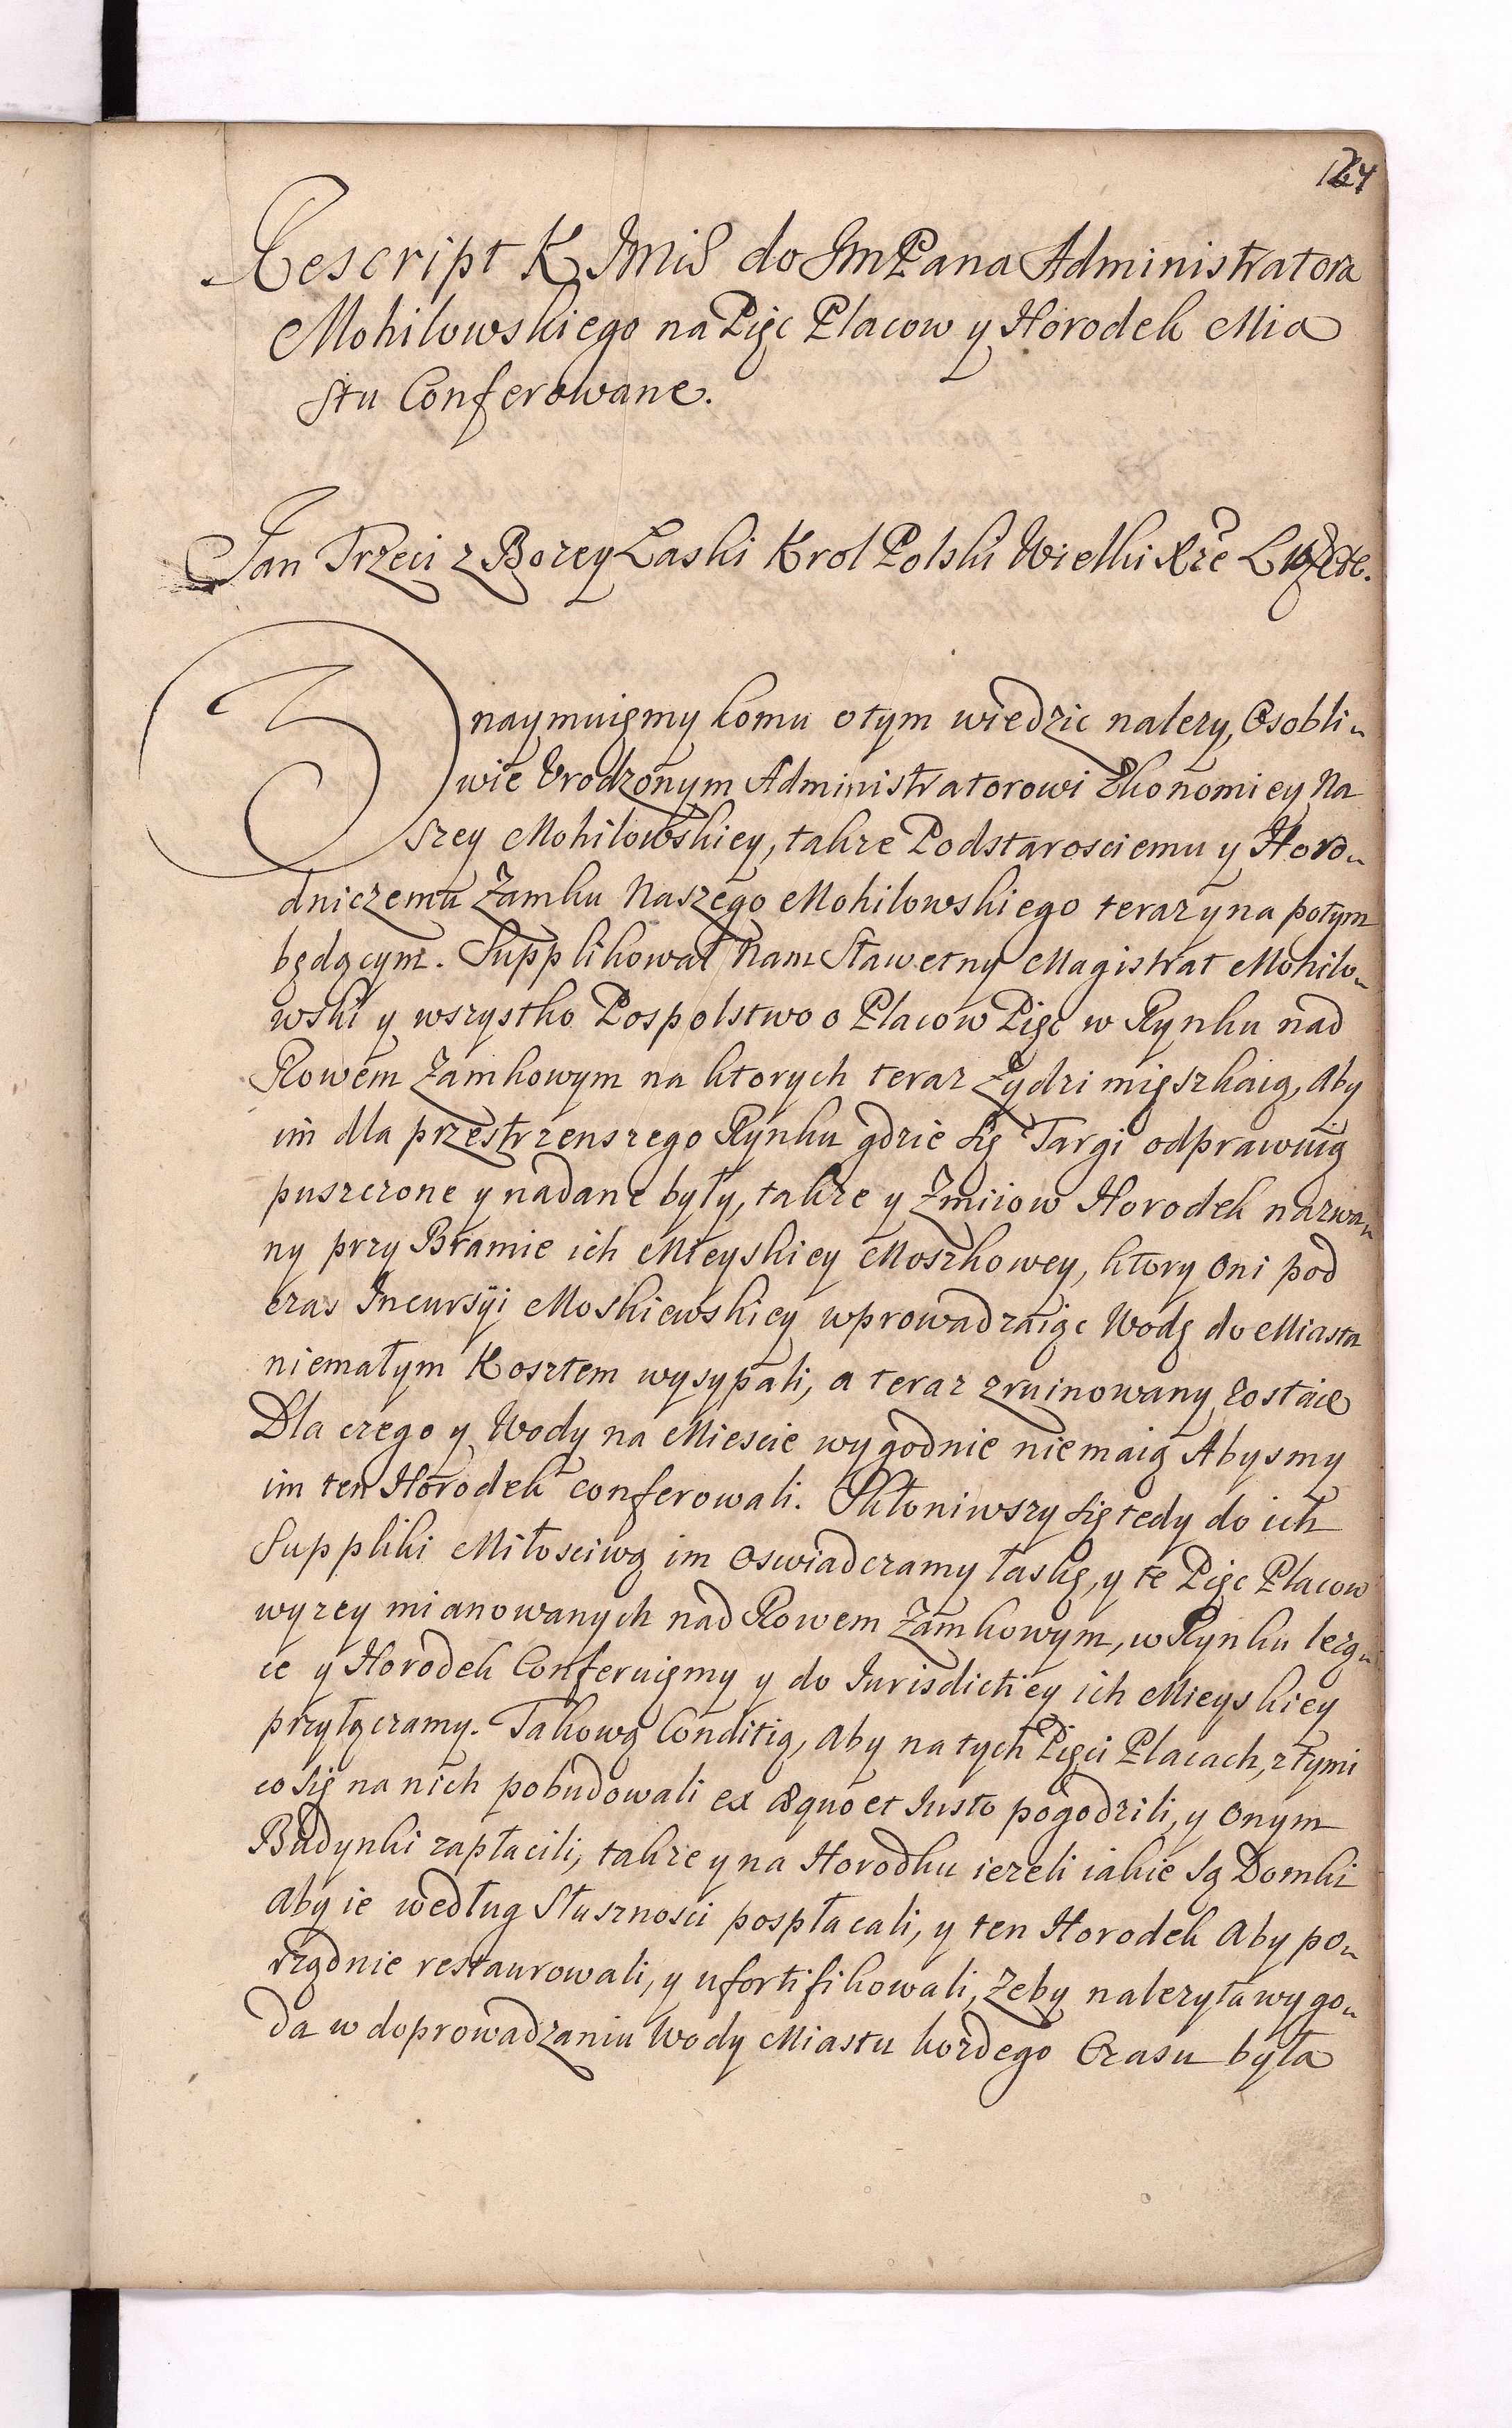 124
Rescript K JmiS do JmPana Administratora
Mohilowskiego na Pięc Placow y Horodek Mia
stu Conferowane.
Jan Trzeci z Bozey Łaski Krol Polski Wielki Xże L &c.
Znaymuięmy komu o tym wiedzic nalezy, Osobli-
wie Urodzonym Administratorowi Ekonomiey Na
szey Mohilowskiey, takze Podstarosciemu y Horo-
dniczemu Zamku Naszego Mohilowskiego teraz y na potym
będącym. Supplikował Nam Sławetny Magistrat Mohilo-
wski y wszystko Pospolstwo o Placow Pięc w Rynku nad
Rowem Zamkowym na ktorych teraz Zydzi mięszkaią, Aby
im dla przestrzenszego Rynku gdzie się Targi odprawuią
puszczone y nadane były, takze y Zmiiow Horodek nazwa-
ny przy Bramie ich Mieyskiey Moszkowey, ktory oni pod
czas Incursÿi Moskiewskiey wprowadzaiąc Wodę do Miasta
niemałym Kosztem wysypali, a teraz zruinowany zostaie
Dla czego y Wody na Miescie wygodnie niemaią Abysmy
im ten Horodek conferowali. Skłoniwszy się tedy do ich
Suppliki Miłosciwą im Oswiadczamy łaskę, y te Pięc Placow
wyzey mianowanych nad Rowem Zamkowym, w Rynku lezą-
ce y Horodek Conferuięmy y do Iurisdictiey ich Mieyskiey
przyłączamy. Takową Conditią, Aby na tych Pięci Placach, z tymi
co się na nich pobudowali ex æquo et Iusto pogodzili, y onym
Budynki zapłacili, takze y na Horodku iezeli iakie są Domki
Aby ie według Słusznosci pospłacali, y ten Horodek Aby po-
rządnie restaurowali, y ufortifikowali, Zeby nalezyta wygo-
da w doprowadzaniu Wody Miastu kozdego Czasu była